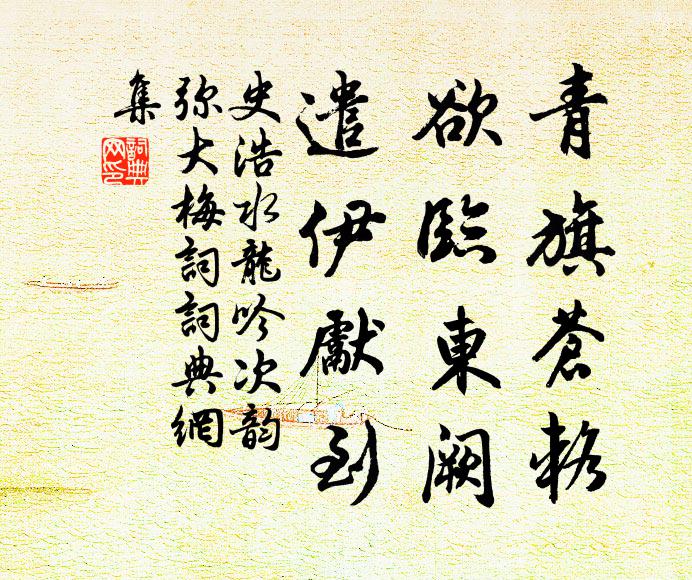 青旗蒼輅
欲臨東闕
遣伊獻到
史浩水龍吟次韵
弥大梅詞詞典網
集
詞典
网印